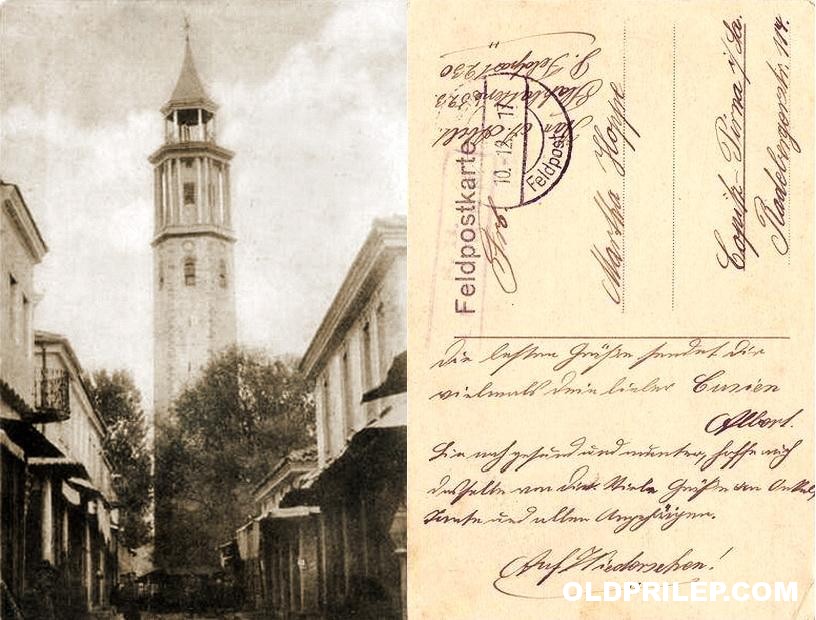 S. Feldpost 930
Feldpostkarte
10.-12. 17
Feldpost
Martha Hoppe
Copitz-Pirna i/Sa.
Radebergerstr. 114.
die besten Grüße sendet dir
vielmals dein lieber Cusien
Albert.
Bin noch gesund und munter, hoffe auch
dasselbe von dir. Viele Grüße an Onkel,
Tante und allen Angehörigen.
Auf Wiedersehen!
OLDPRILEP.COM